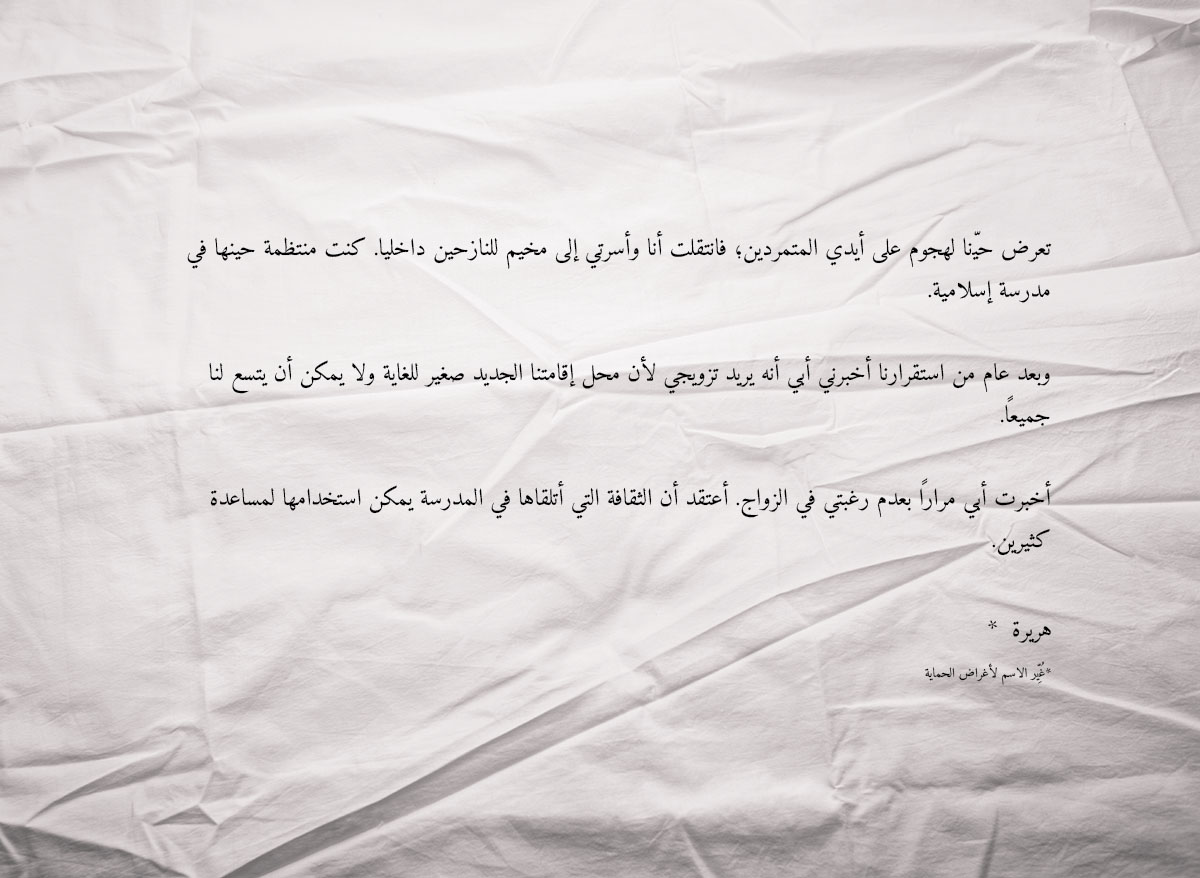 تعرض حيّنا لهجوم على أيدي المتمردين؛ فانتقلت أنا وأسرتي إلى مخيم للنازحين داخليا. كنت منتظمة حينها في
مدرسة إسلامية.
وبعد عام من استقرارنا أخبرني أبي أنه يريد تزويجي لأن محل إقامتنا الجديد صغير للغاية ولا يمكن أن يتسع لنا
جميعاً.
أخبرت أبي مراراً بعدم رغبتي في الزواج. أعتقد أن الثقافة التي أتلقاها في المدرسة يمكن استخدامها لمساعدة
كثيرين.
هريرة *
*غُيِّر الاسم لأغراض الحماية